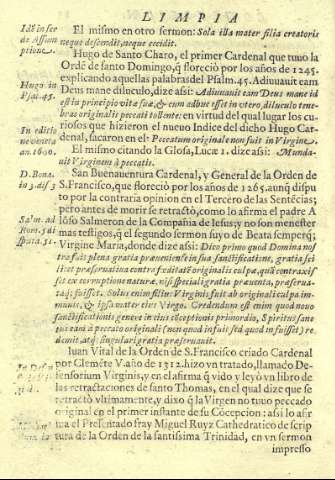 LIMPIA
El mismo en otro sermon: Sola illa mater filia creatoris
neque descendit, neque cecidit.
Hugo de Santo Charo, el primer Cardenal que tuuo la
Ordē de santo Domingo, q̃ florecio por los años de 1245.
explicando aquellas palabras del Psalm. 45. Adiuuauit eam
Deus mane diluculo, dize assi: Adiuuauit eam Deus mane id
est in principio vitæ suæ, & cum adhuc esset in vtero, diluculo tene
bras originalis peccati tollente: en virtud del qual lugar los cu
riosos que hizieron el nueuo Indice del dicho Hugo Car-
denal, sacaron en el: Peccatum originale non fuit in Virgine.
El mismo citando la Glosa, Lucæ 1. dize assi: Munda-
uit Virginem à peccatis.
San Buenauentura Cardenal, y General de la Orden de
S. Francisco, que florecio por los años de 1265. aunq̃ dispu
to por la contraria opinion en el Tercero de las Sentēcias;
pero antes de morir se retrató, como lo afirma el padre A
lōso Salmeron de la Compañia de Iesus; y no son menester
mas testigos, q̃ el segundo sermon suyo de Beata semper q̃;
Virgine Maria, donde dize assi: Dico primo quod Domina nos
tra fuit plena gratia præueniente in sua sanctificatione, gratia sci
licet præseruatiua contra fæditatē originalis culpæ, quā contraxis
set ex corruptione naturæ, nisi speciali gratia præuenta, præserua-
taq; fuisset. Solus enim filius Virginis fuit ab originali culpa im-
munis, & ipsa mater eius Virgo. Credendum est enim quod nouo
sanctificationis genere in eius cōceptionis primordio, Spiritus sanc
tus eam à peccato originali (non quod infuit sed quod infuisset) re
demit, atq; singulari gratia præseruauit.
Iuan Vital de la Orden de S. Francisco criado Cardenal
por Clemēte V. año de 1312. hizo vn tratado, llamado De-
fensorium Virginis, y en el afirma q̃ vido y leyò vn libro de
las retractaciones de santo Thomas, en el qual dize que se
retractò vltimamente, y dixo q̃ la Virgen no tuuo peccado
original en el primer instante de su Cōcepcion: assi lo afir
ma el Presentado fray Miguel Ruyz Cathedratico de scrip
tura de la Orden de la santissima Trinidad, en vn sermon
impresso
Idē in ser
de Assum
ptione.
Hugo in
Psal. 45.
In editio
ne veneta
an. 1600.
D. Bona.
in 3. dis. 3
Salm. ad
Rom. 5. di
sputa. 51.